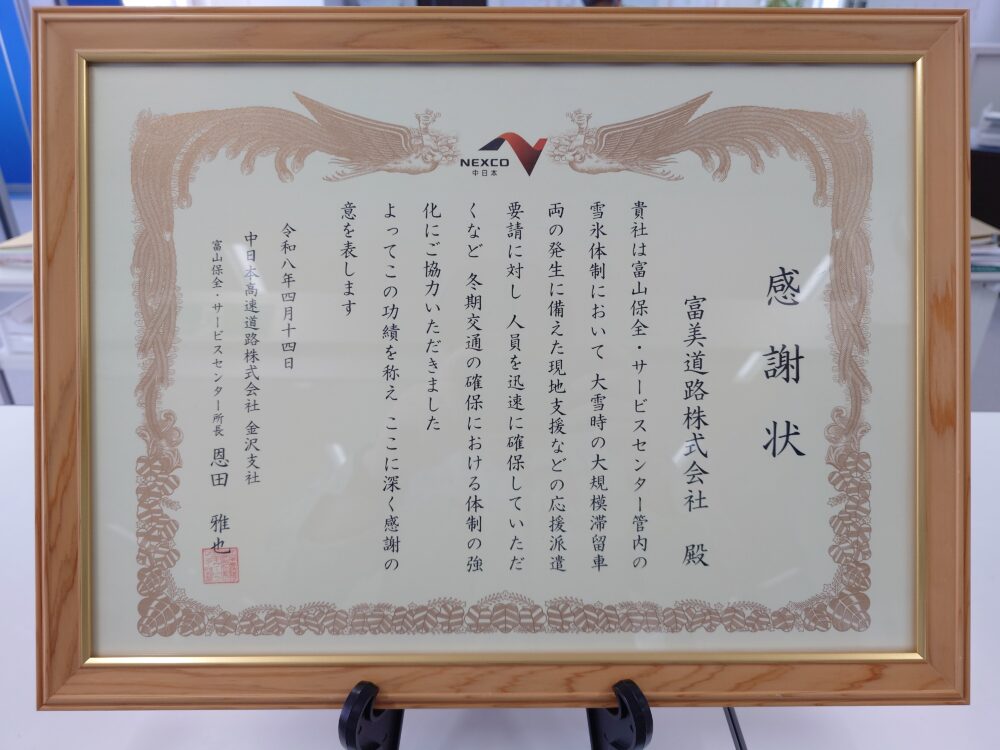 NEXCO
中日本
感謝状
富美道路株式会社 殿
貴社は富山保全・サービスセンター管内の
雪氷体制において 大雪時の大規模滞留車
両の発生に備えた現地支援などの応援派遣
要請に対し 人員を迅速に確保していただ
くなど 冬期交通の確保における体制の強
化にご協力いただきました
よってこの功績を称え ここに深く感謝の
意を表します
令和八年四月十四日
中日本高速道路株式会社 金沢支社
富山保全・サービスセンター所長 恩田 雅也